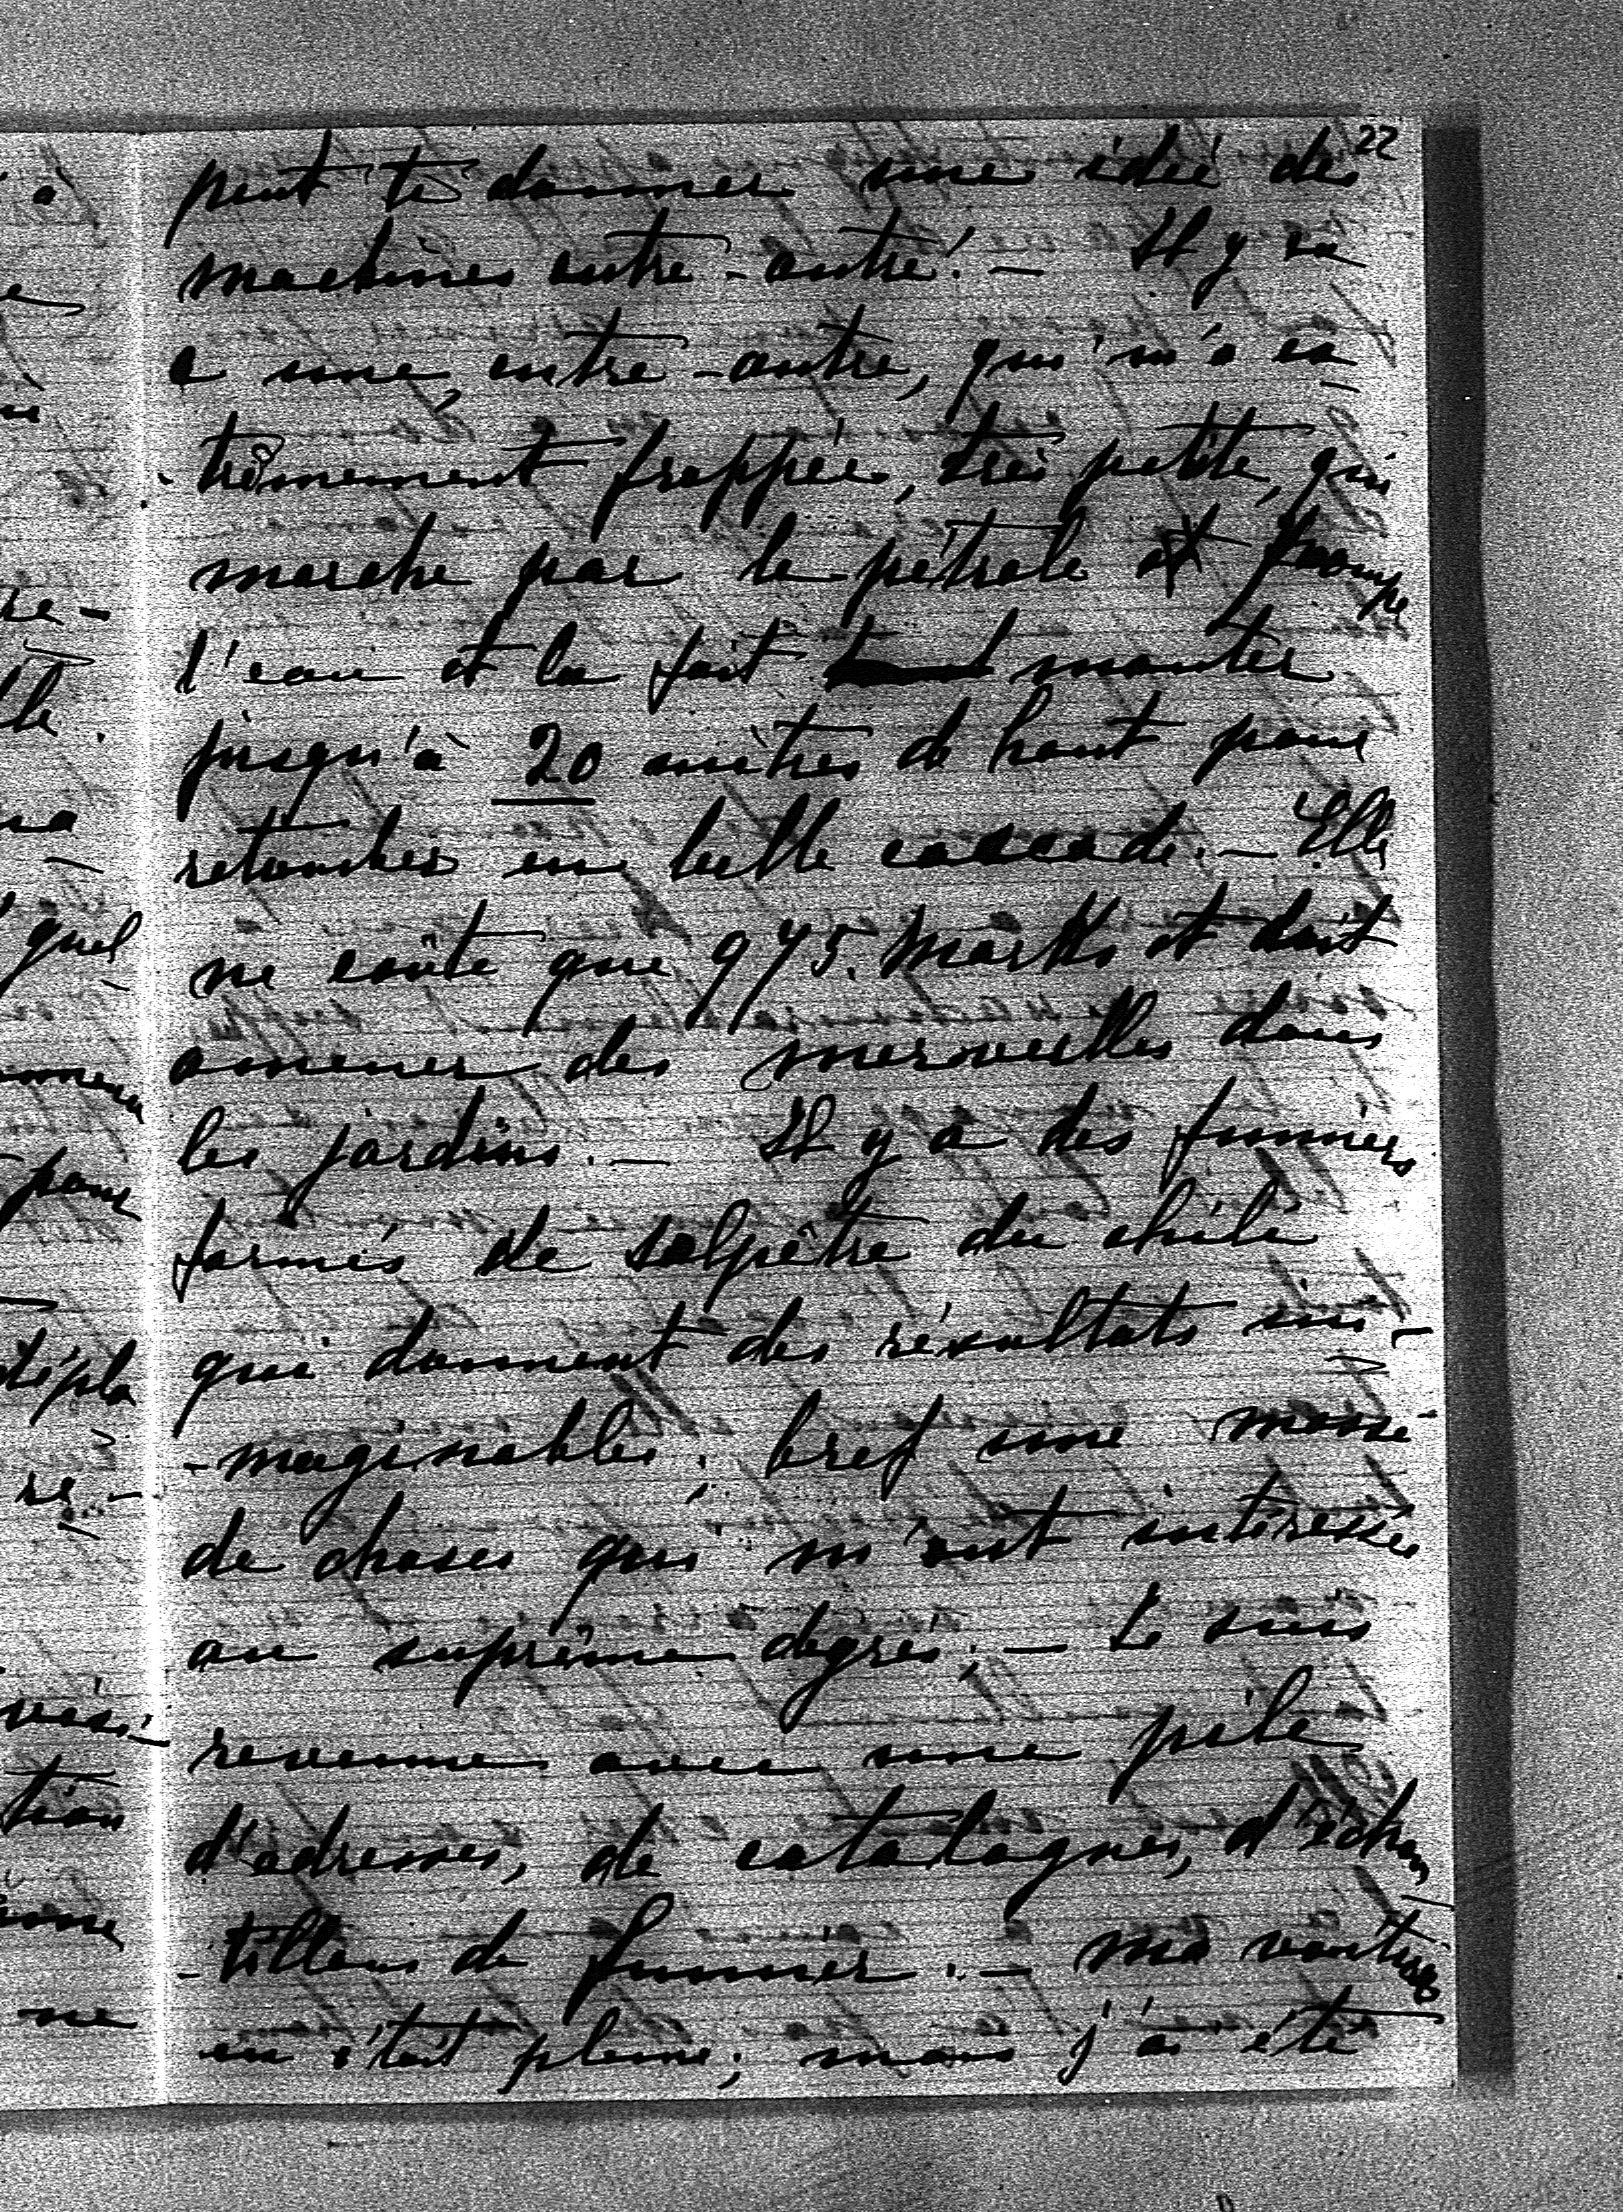 22
peut te donner une idée des
machines entre-autre! — Il y en
a une, entre-autre, qui m'a ex
-trêmement frappée, très petite, qui
marche par le pétrole et pompe
l'eau et la fait monter
jusqu'à 20 mètres de haut pour
retomber en belle cascade. — Elle
ne coûte que 975. Marks et doit
amener des merveilles dans
les jardins. — Il y a des fumiers
formés de salpêtre du chili
qui donnent des résultats ini-
-maginables; bref une masse
de choses qui m'ont intéressée
au suprême degrés; — Je suis
revenue avec une pile
d'adresses, de catalogues, d'échan
-tillons de fumier. — ma voiture
en était pleine; mais j'ai été